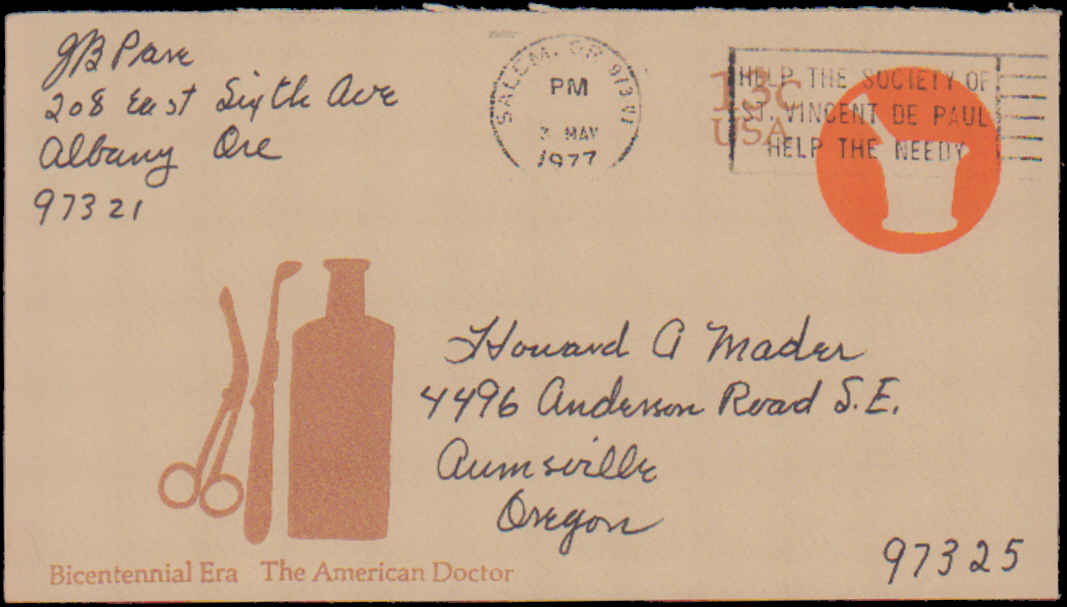 JB Pare
208 East Sixth Ave
Albany Ore
97321
SALEM, OR 973
PM
3 MAY
1977
13c
USA
HELP THE SOCIETY OF
ST. VINCENT DE PAUL
HELP THE NEEDY
Howard A Mader
4496 Anderson Road S.E.
Aumsville
Oregon
97325
Bicentennial Era The American Doctor